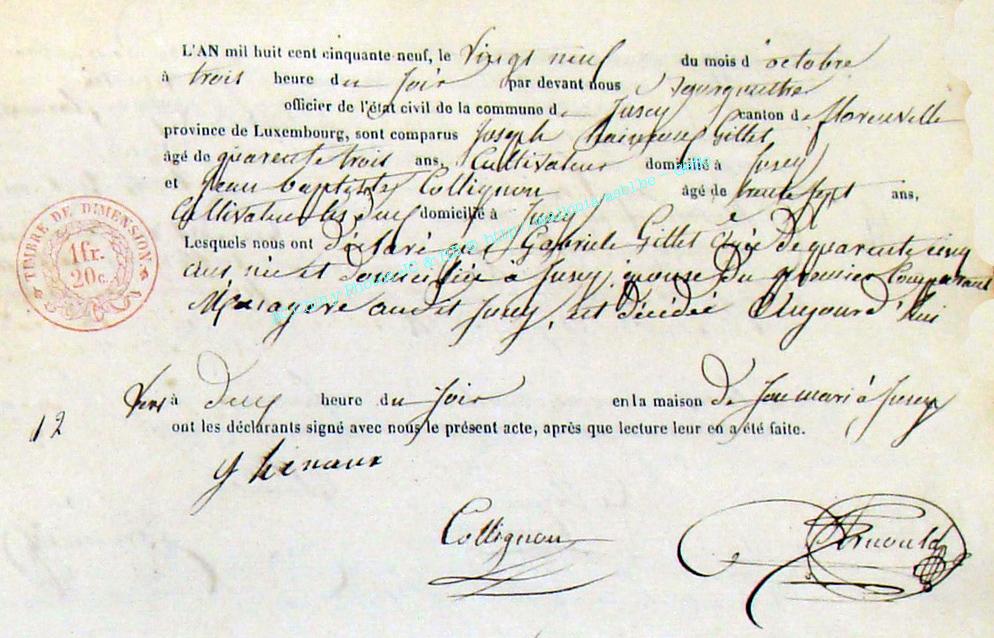 L'AN mil huit cent cinquante-neuf, le vingt neuf du mois d'octobre
à trois heure du soir par devant nous
officier de l'état civil de la commune de Jusey canton de florenville
province de Luxembourg, sont comparus Joseph Gillet
âgé de quarente trois ans, Cultivateur domicilié à Jusey
et Jean baptiste Collignon âgé de trente sept ans,
Cultivateur les deux domicilié à Jusey
Lesquels nous ont déclaré que Gabriele Gillet agée de quarente cinq
ans née et domiciliée à Jusey, épouse du premier Comparant
Menagere audit Jusey, est décédée Aujourd'hui
TIMBRE DE DIMENSION
1 fr.
20 c.
Vers à deux heure du soir en la maison de son mari à Jusey
12
ont les déclarants signé avec nous le présent acte, après que lecture leur en a été faite.
Collignon
Arnould